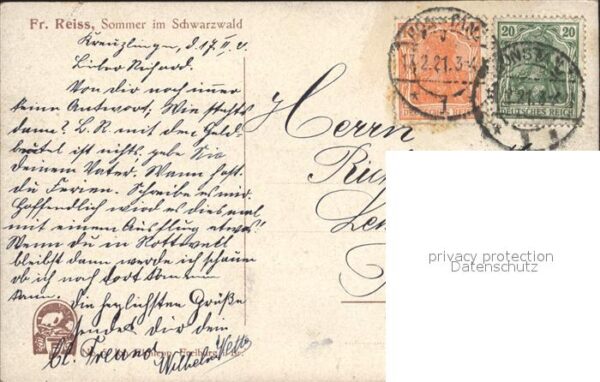 Fr. Reiss, Sommer im Schwarzwald
Kreuzlingen, d. 17. II.
Lieber Richard.
Von dir noch immer
keine Antwort; Wie stehts
dann? L. R. mit dem Geld-
beutel ist nichts, gebe Sie
deinem Vater. Wann hast
du Ferien. Schreibe es mir.
Hoffendlich wird es diesmal
mit einem Ausflug etwas!!
Wenn du in Rottweil
bleibst dann werde ich schauen
ob ich noch dort kommen
kann. Die herzlichsten Grüße
sendet dir dein
Freund Wilhelm
Herrn
14.2.21.3-4
1
20
20
DEUTSCHES REICH
DEUTSCHES REICH
privacy protection
Datenschutz